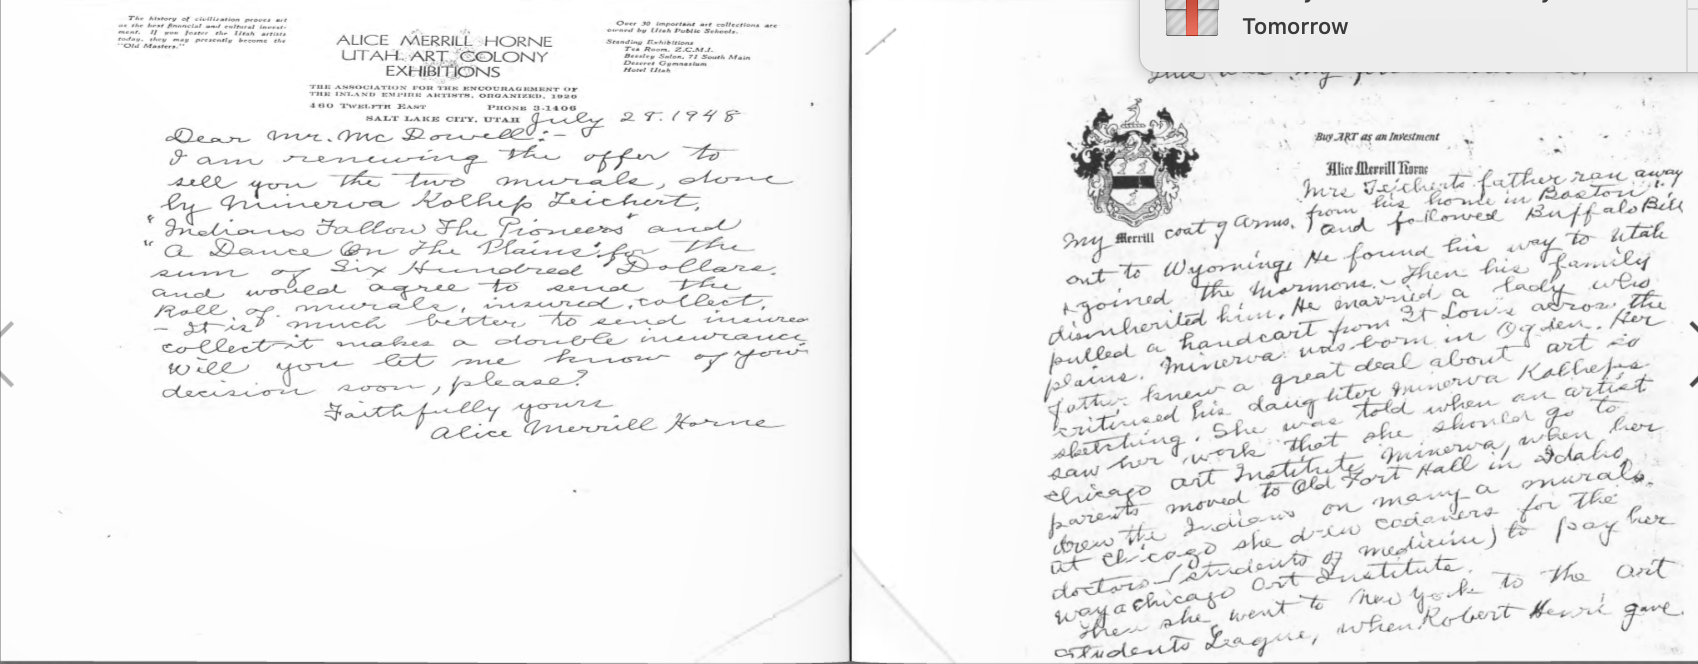 The history of civilization proves art
as the best financial and cultural invest-
ment. If you foster the Utah artists
today, they may presently become the
"Old Masters."
ALICE MERRILL HORNE
UTAH ART COLONY
EXHIBITIONS
Over 30 important art collections are
owned by Utah Public Schools.
Standing Exhibitions
Tea Room, Z.C.M.I.
Beesley Salon, 71 South Main
Deseret Gymnasium
Hotel Utah
THE ASSOCIATION FOR THE ENCOURAGEMENT OF
THE INLAND EMPIRE ARTISTS, ORGANIZED, 1920
460 TWELFTH EAST PHONE 3-1406
SALT LAKE CITY, UTAH July 28. 1948
Dear Mr. Mc Dowell:-
I am renewing the offer to
sell you the two murals, done
by Minerva Kolhep Teichert,
"Indians Follow The Pioneers" and
"A Dance On The Plains" for the
sum of Six Hundred Dollars.
and would agree to send the
Roll of murals, insured, collect.
- It is much better to send insured
collect - it makes a double insurance
Will you let me know of your
decision soon, please?
Faithfully yours
Alice Merrill Horne
Tomorrow
was my
Buy ART as an Investment
Alice Merrill Horne
Mrs Teicherts father ran away
from his home in Boston
My Merrill coat of Arms. and followed Buffalo Bill
out to Wyoming. He found his way to Utah
& joined the Mormons. Then his family
disinherited him. He married a lady who
pulled a handcart from St Louis across the
plains. Minerva was born in Ogden. Her
father knew a great deal about art so
critised his daughter Minerva Kolheps
sketching. She was told when an artist
saw her work that she should go to
Chicago Art Institute. Minerva, when her
parents moved to Old Fort Hall in Idaho,
drew the Indians on many a mural.
At Chicago she drew cadavers for the
doctors (students of medicine) to pay her
way a Chicago Art Institute.
Then she went to New York to the Art
Students League, when Robert Henri gave